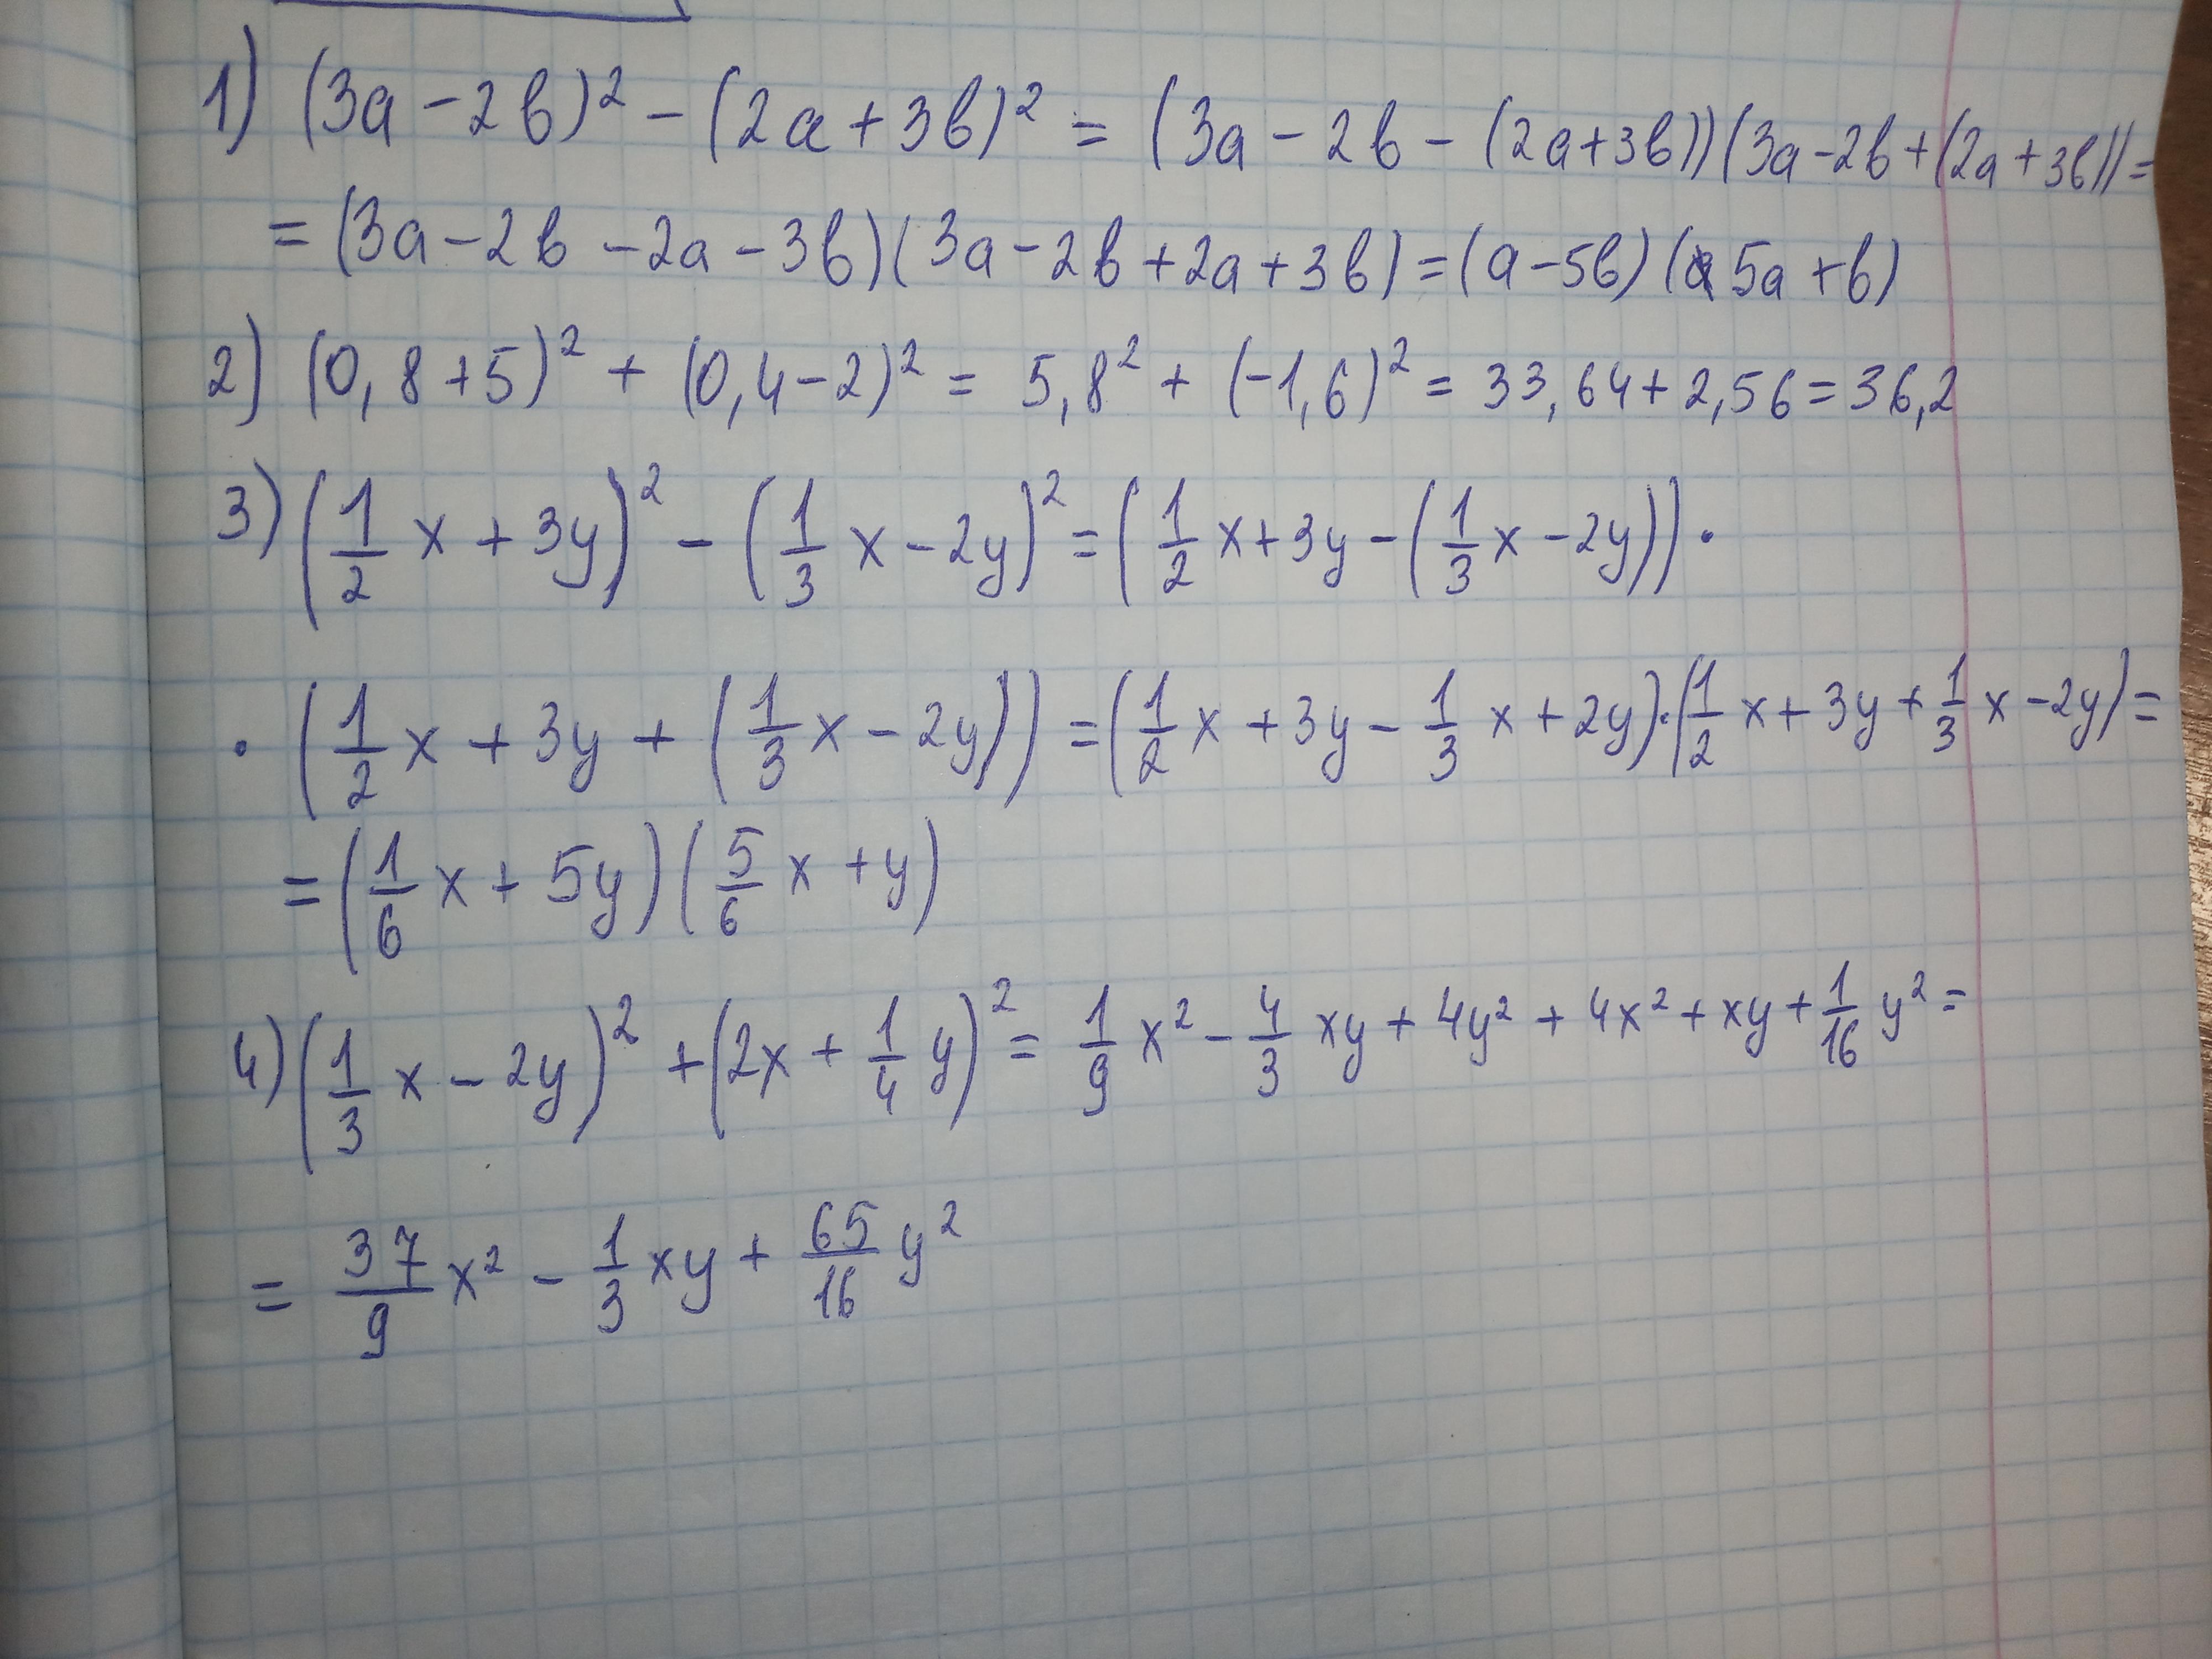 1) (3a - 2b)² - (2a + 3b)² = (3a - 2b - (2a + 3b))(3a - 2b + (2a + 3b)) =
= (3a - 2b - 2a - 3b)(3a - 2b + 2a + 3b) = (a - 5b)(5a + b)
2) (0,8 + 5)² + (0,4 - 2)² = 5,8² + (-1,6)² = 33,64 + 2,56 = 36,2
3) (1/2 x + 3y)² - (1/3 x - 2y)² = (1/2 x + 3y - (1/3 x - 2y)) ·
· (1/2 x + 3y + (1/3 x - 2y)) = (1/2 x + 3y - 1/3 x + 2y) · (1/2 x + 3y + 1/3 x - 2y) =
= (1/6 x + 5y)(5/6 x + y)
4) (1/3 x - 2y)² + (2x + 1/4 y)² = 1/9 x² - 4/3 xy + 4y² + 4x² + xy + 1/16 y² =
= 37/9 x² - 1/3 xy + 65/16 y²